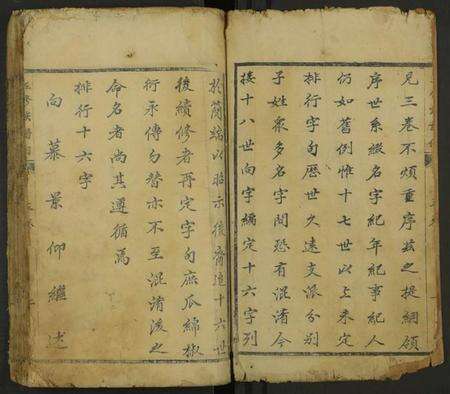 見三卷不煩重序茲之提綱領
序世系綴名字紀年紀事紀人
仍如舊例惟十七世以上未定
排行字句厯世久遠支派分別
子姓衆多名字間恐有混淆今
接十八世向字編定十六字列
於簡端以昭示後裔迨十六世
後續修者再定字句庶瓜綿椒
衍永傳勿替亦不至混淆之
命名者尚其遵循焉
排行十六字
向慕景仰繼述